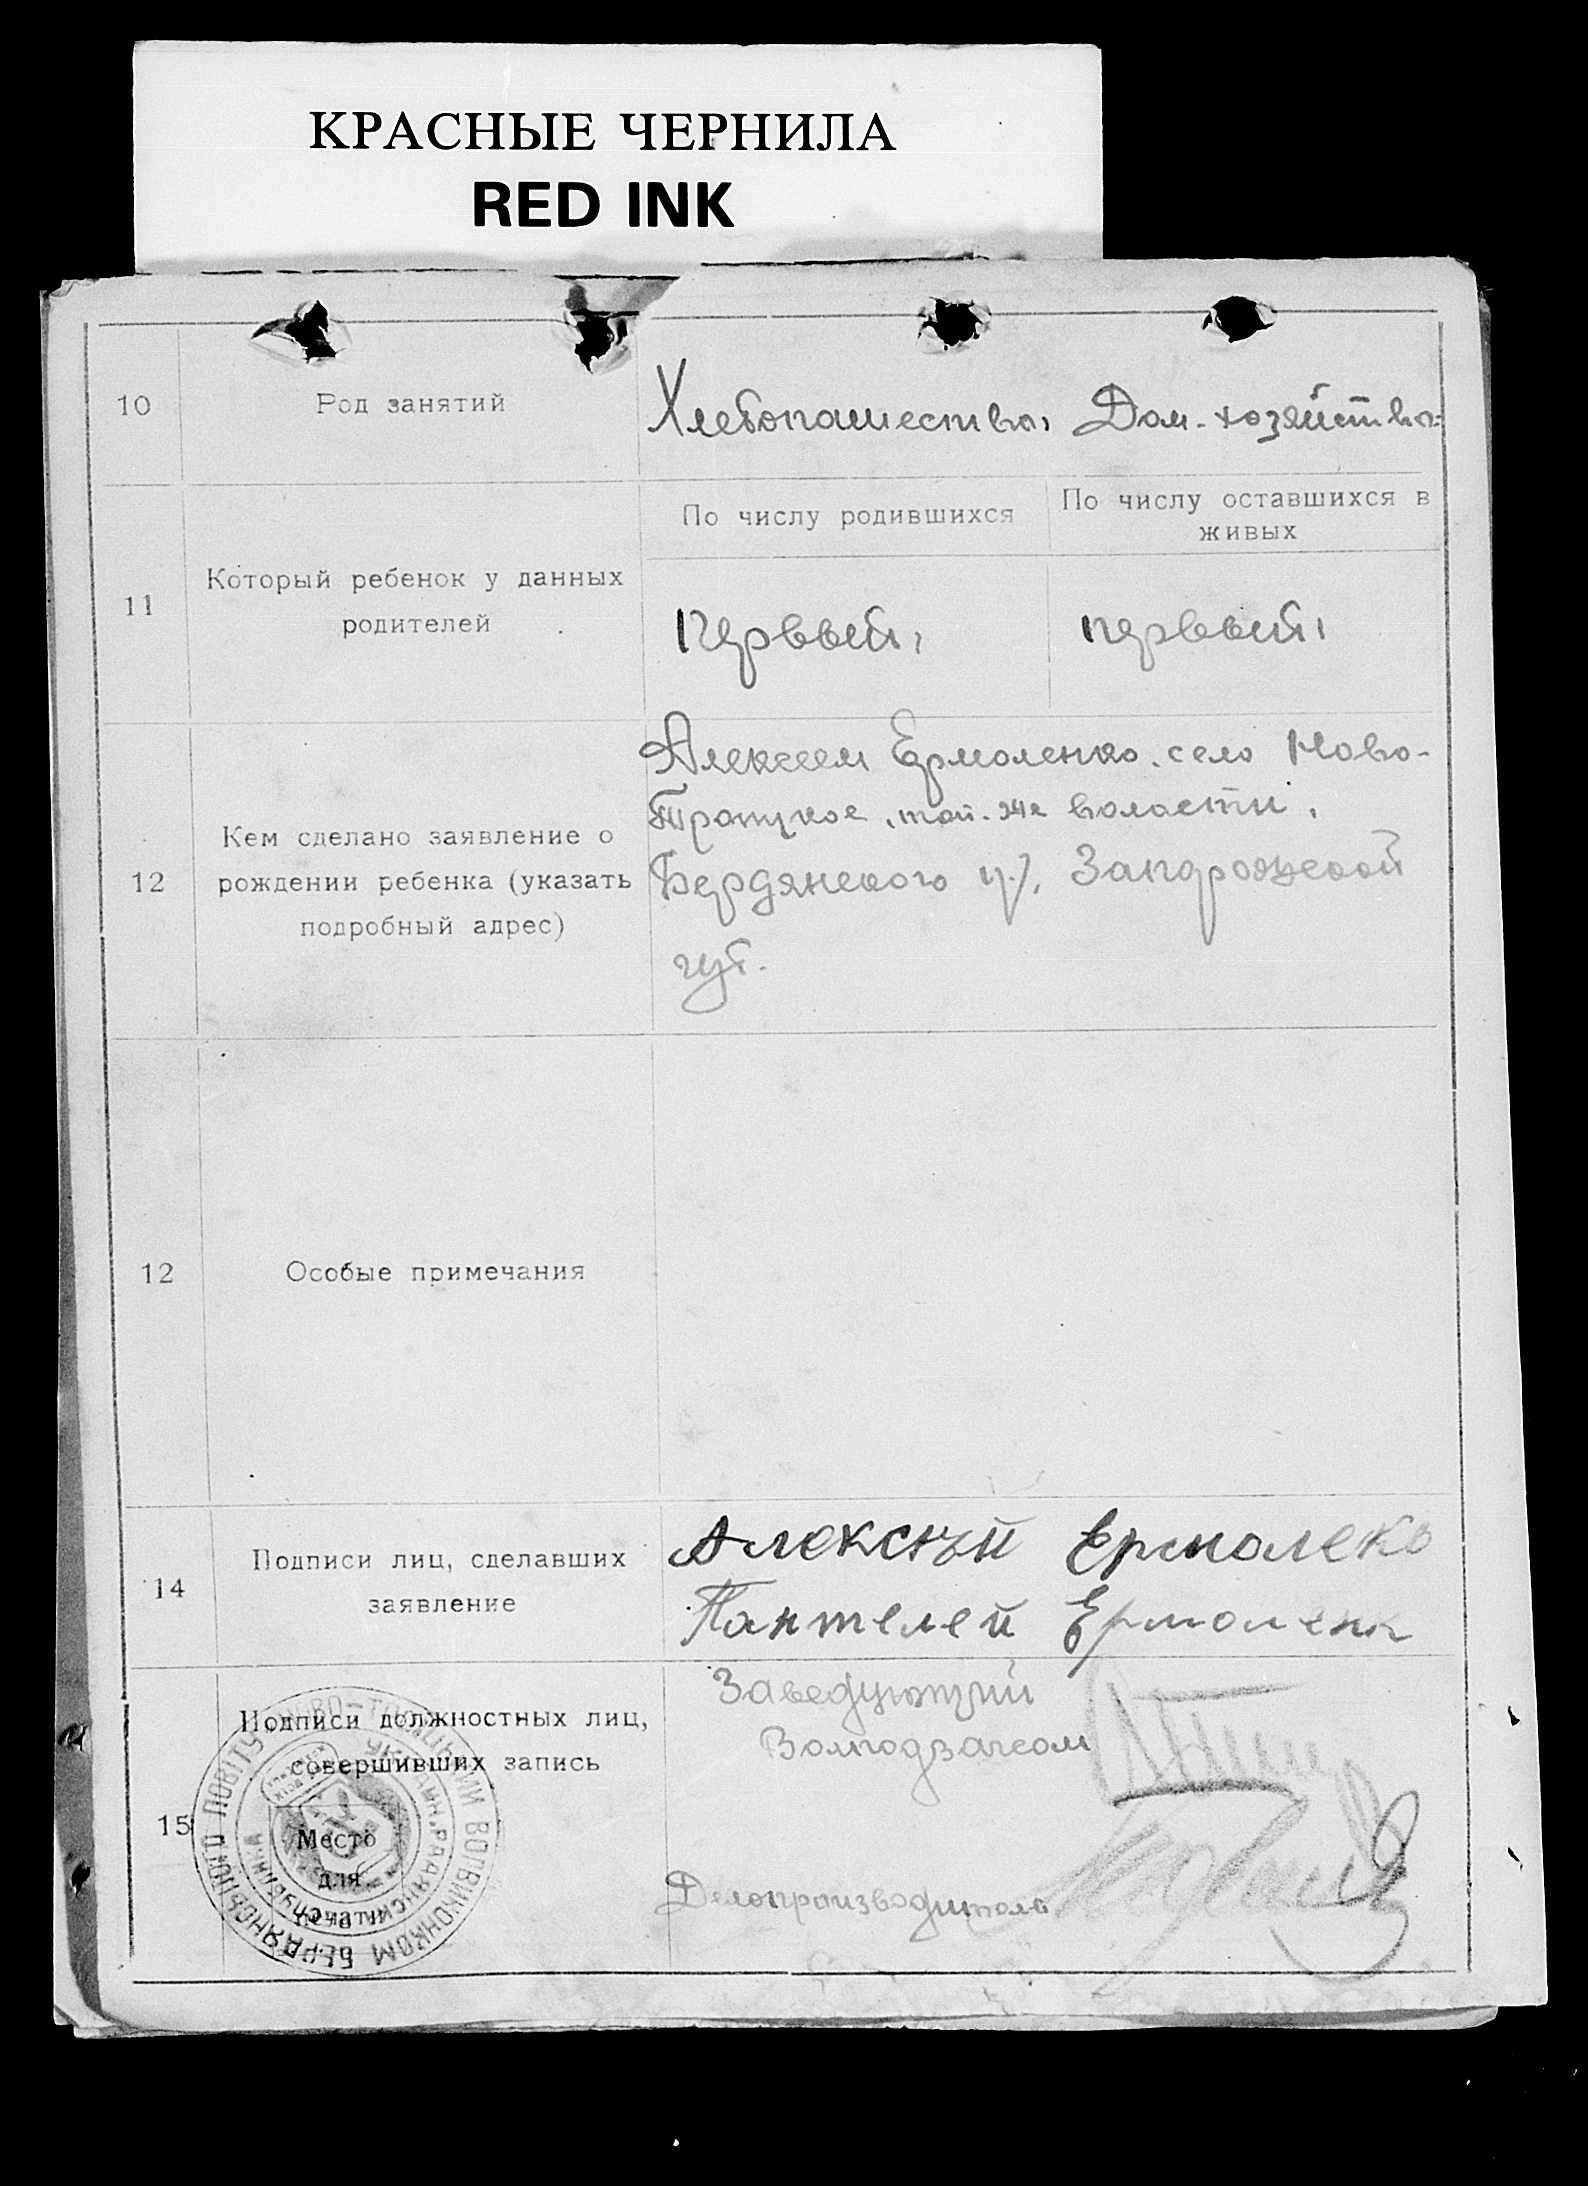 КРАСНЫЕ ЧЕРНИЛА
RED INK
10
Род занятий
Хлебопашество, Дом-хозяйство.
11
Который ребенок у данных
родителей
По числу родившихся
По числу оставшихся в
живых
Первый,
первый,
12
Кем сделано заявление о
рождении ребенка (указать
подробный адрес)
Алексеем Ермоленко. село Ново-
Троицкое, той-же волости,
Бердянского у., Запорожской
губ.
12
Особые примечания
14
Подписи лиц, сделавших
заявление
Алексѣй Ермолеко
Пантелей Ермоленк
15
Подписи должностных лиц,
совершивших запись
Место
для
печати
Заведующий
Делопроизводитель
НОВО-ТРОЇЦЬКИЙ ВОЛВИКОНКОМ БЕРДЯНСЬКОГО ПОВІТУ